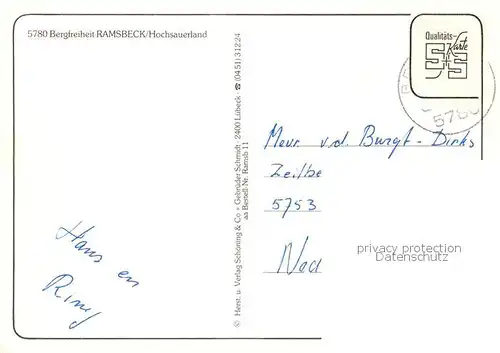 5780 Bergfreiheit-RAMSBECK/Hochsauerland
Qualitäts-
Karte
5780
© Herst. u. Verlag Schöning & Co + Gebrüder Schmidt, 2400 Lübeck ☎ (0451) 31224
aa Bestell-Nr. Ramsb 11
Mevr. v.d. Burgt - Dirks
Zeilbe
5753
Hans en
privacy protection
Datenschutz